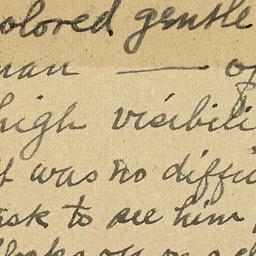 colored gentle
man — of
high visibili
it was no diffic
ask to see him